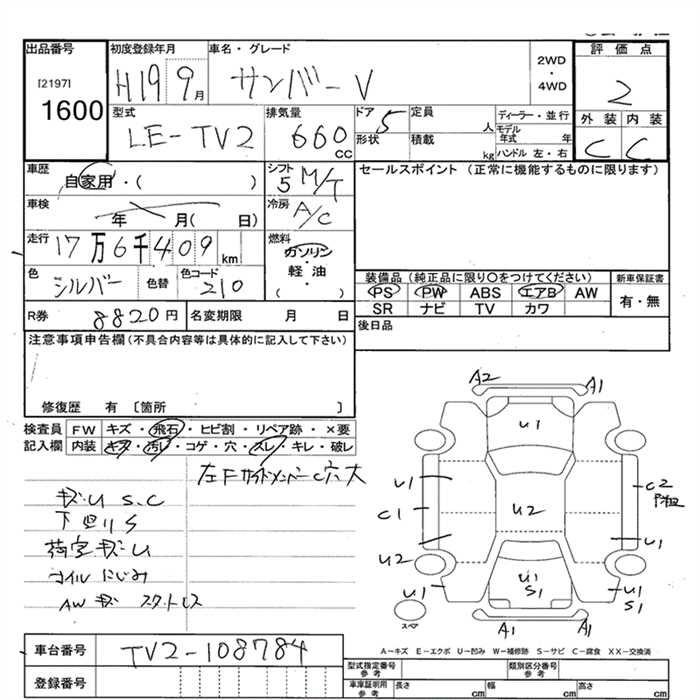 出品番号
[2197]
1600
初度登録年月
H19 9月
車名・グレード
サンバーV
2WD
・
4WD
評価点
2
型式
LE-TV2
排気量
660
CC
ドア
5
形状
定員
人
積載
kg
ディーラー・並行
モデル年式 年
ハンドル 左・右
外装 内装
C C
車歴
自家用・( )
シフト
5 M/T
セールスポイント (正常に機能するものに限ります)
車検
年 月( 日)
冷房
A/C
走行
17万6千409km
燃料
ガソリン
・
軽・油
( )
色
シルバー
色替
色コード
210
装備品(純正品に限り○をつけてください)
新車保証書
PS PW ABS エアB AW
有・無
SR ナビ TV カワ
R券 8820円
名変期限 月 日
後日品
注意事項申告欄(不具合内容等は具体的に記入して下さい)
修復歴 有 〔箇所 〕
検査員 FW キズ・飛石・ヒビ割・リペア跡・×要
記入欄 内装 キズ・汚レ・コゲ・穴・スレ・キレ・破レ
左Fサイドメンバー C穴大
キズ・U S.C
下回りS
荷室キズ・U
オイルにじみ
AWキズ スタットレス
A2 A1
U1
U1
C2
C1
U2
U1
U2
U1
U1
S1
U1
S1
スペア
A1 A1
A−キズ E−エクボ U−凹み W−補修跡 S−サビ C−腐食 XX−交換済
車台番号 TV2-108784
登録番号
型式指定番号
参考
類別区分番号
参考
車庫証明用
参考
長さ cm 幅 cm 高さ cm